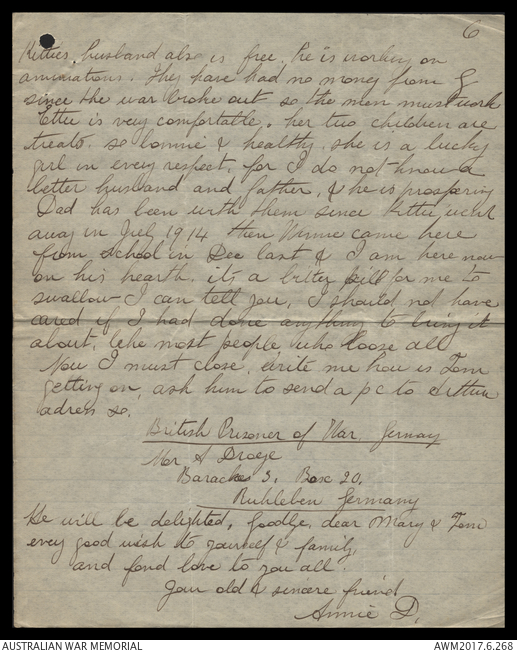 6
Kitties, husband also is free, he is working on
amunations. They have had no money from G
since the war broke out so the men must work
Ettie is very comfortable. her two children are
treats. so bonnie & healthy. she is a lucky
girl in every respect, for I do not know a
better husband and father, & he is prospering
Dad has been with them since Kittie went
away in July 1914 then Winnie came here
from school in Dec last & I am here now
on his hearth. its a bitter pill for me to
swallow I can tell you, I should not have
cared if I had done anything to bring it
about, like most people who loose all
Now I must close, write me how is Tom
getting on, ask him to send a pc to Arthur
adress so.
British Prisoner of War. Germay
Mr A Droege
Baracks 3. Box 20.
Ruhleben Germany
He will be delighted, Goodbye, dear Mary & Tom
every good wish to yourself & family,
and fond love to you all.
Your old & sincere friend
Annie D.
AUSTRALIAN WAR MEMORIAL
AWM2017.6.268